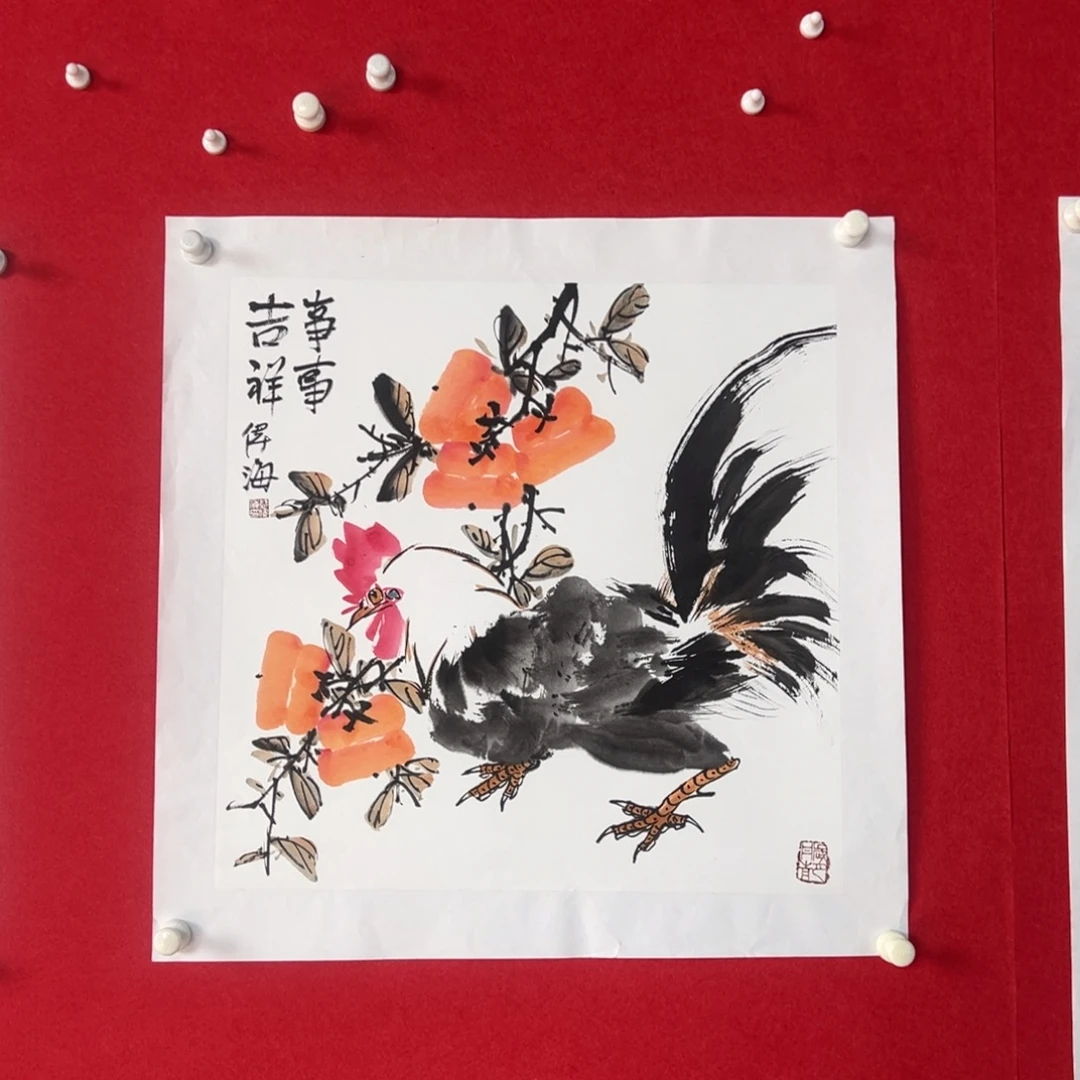 事事
吉祥
俾海